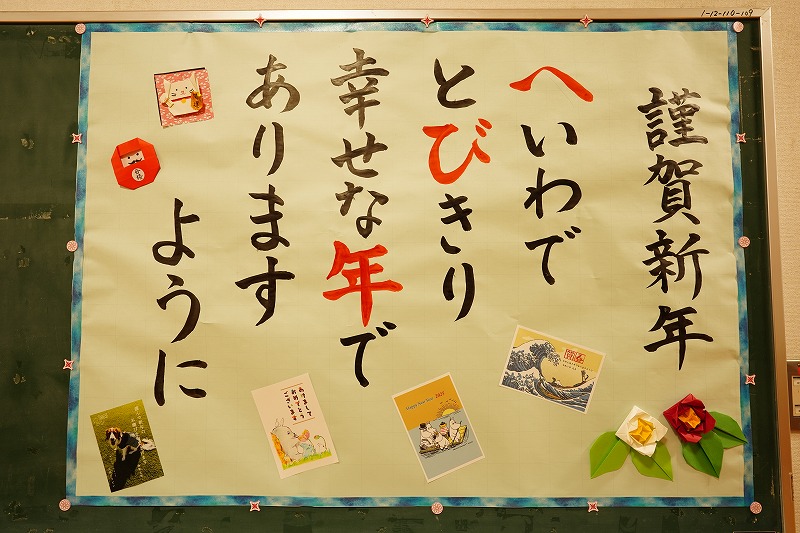 1-12-110-109
謹賀新年
へいわで
とびきり
幸せな年で
あります
ように
Happy New Year 2025
あけまして
おめでとう
ございます